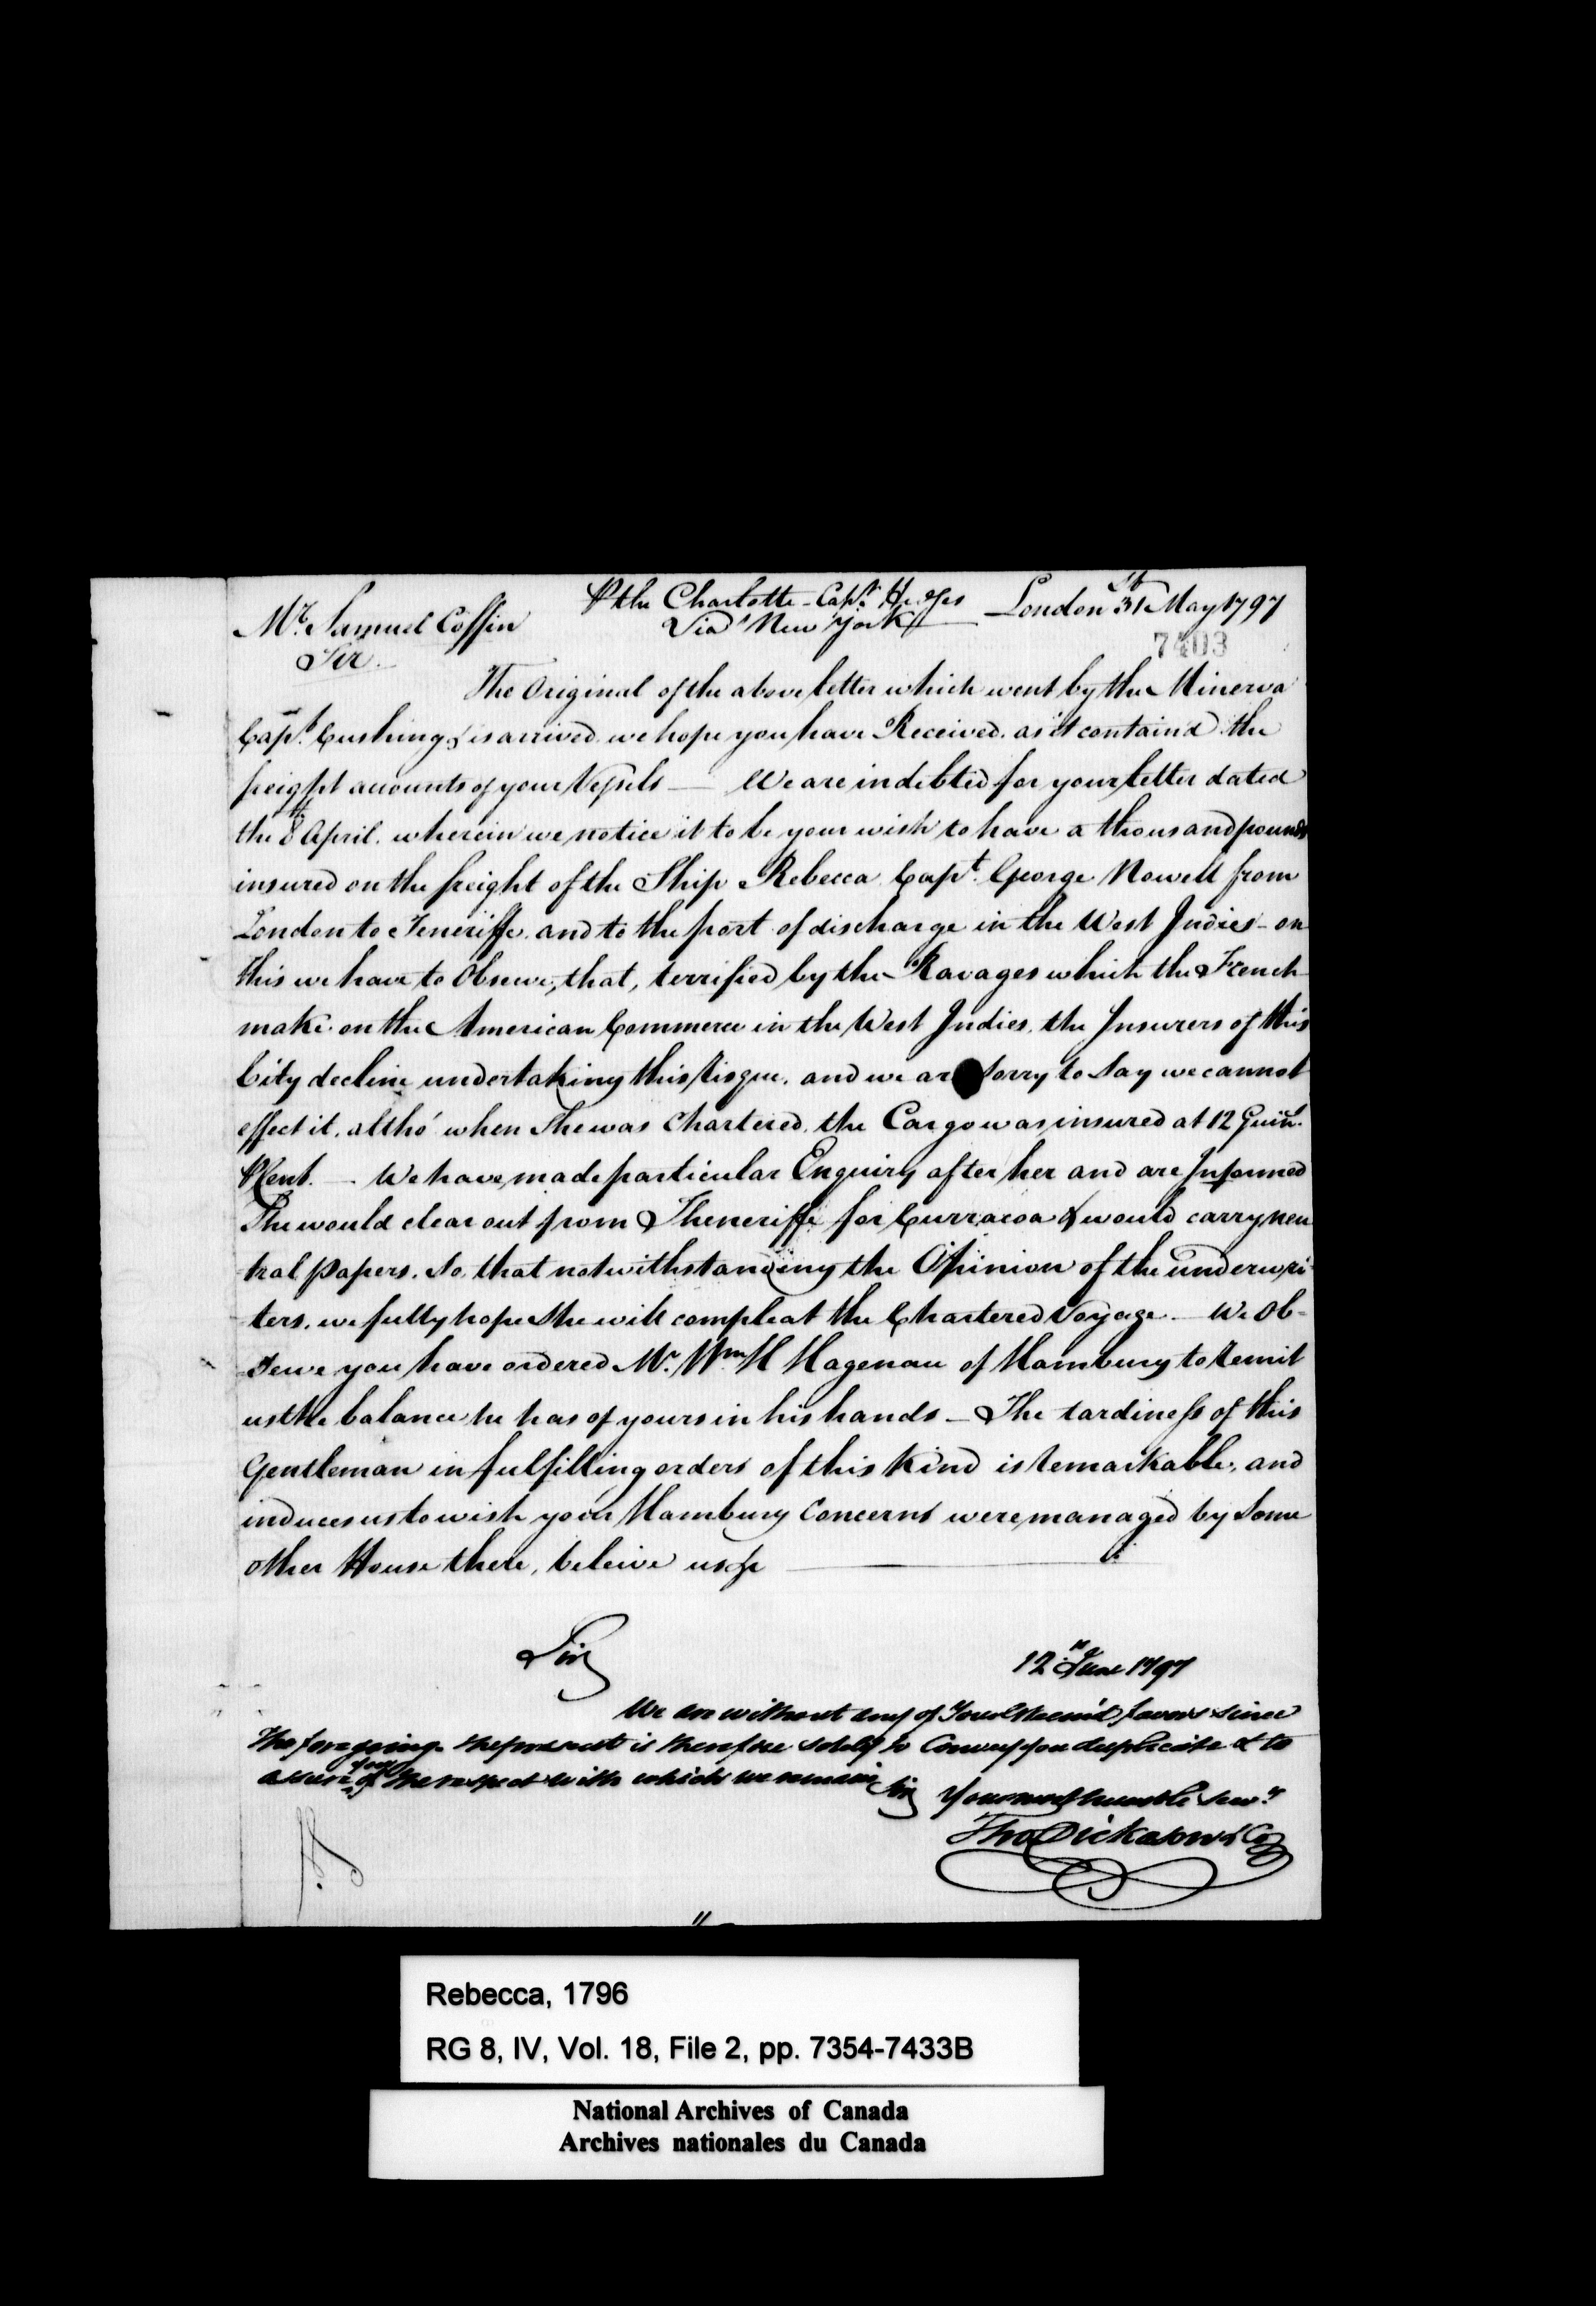 Mr. Samuel Coffin
⅌ the Charlotte - Capt.
Via New York
London 31st May 1797
7403
Sir.
The Original of the above letter which went by the Minerva
Capt. Cushing, & is arrived we hope you have Received, as it contain'd the
freight accounts of your Vessels — We are indebted for your letter dated
the 8th April. wherein we notice it to be your wish to have a thousand pounds
insured on the freight of the Ship Rebecca Capt. George Nowell from
London to Teneriffe, and to the port of discharge in the West Indies - on
this we have to Observe, that, terrified by the Ravages which the French
make on the American Commerce in the West Indies, the Insurers of this
City decline undertaking this risque, and we are sorry to say we cannot
effect it, altho' when She was Chartered, the Cargo was insured at 12 Guins.
⅌ Cent. — We have made particular Enquiry after her and are Informed
She would clear out from Theneriffe for Curracoa & would carry neu
tral papers. So, that notwithstanding the Opinion of the underwri-
ters, we fully hope She will compleat the Chartered Voyage. — We Ob-
serve you have ordered Mr. Wm H Hagenau of Hamburg to remit
us the balance he has of yours in his hands — The tardiness of this
Gentleman in fulfilling orders of this Kind is remarkable, and
induces us to wish your Hamburg Concerns were managed by Some
other House there, beleive us &c
Sir
12th June 1797
We are without any of Your Esteem'd favors since
the foregoing. the present is therefore solely to Convey you duplicate & to
assure you of the respect with which we remain
Sir Your most humble Servts
Thos Dickason & Co
Rebecca, 1796
RG 8, IV, Vol. 18, File 2, pp. 7354-7433B
National Archives of Canada
Archives nationales du Canada